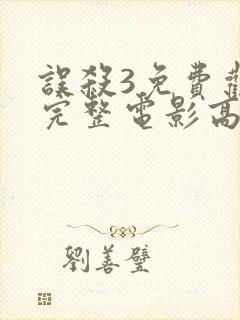 誤殺3免費
完整電影高
劉善璧